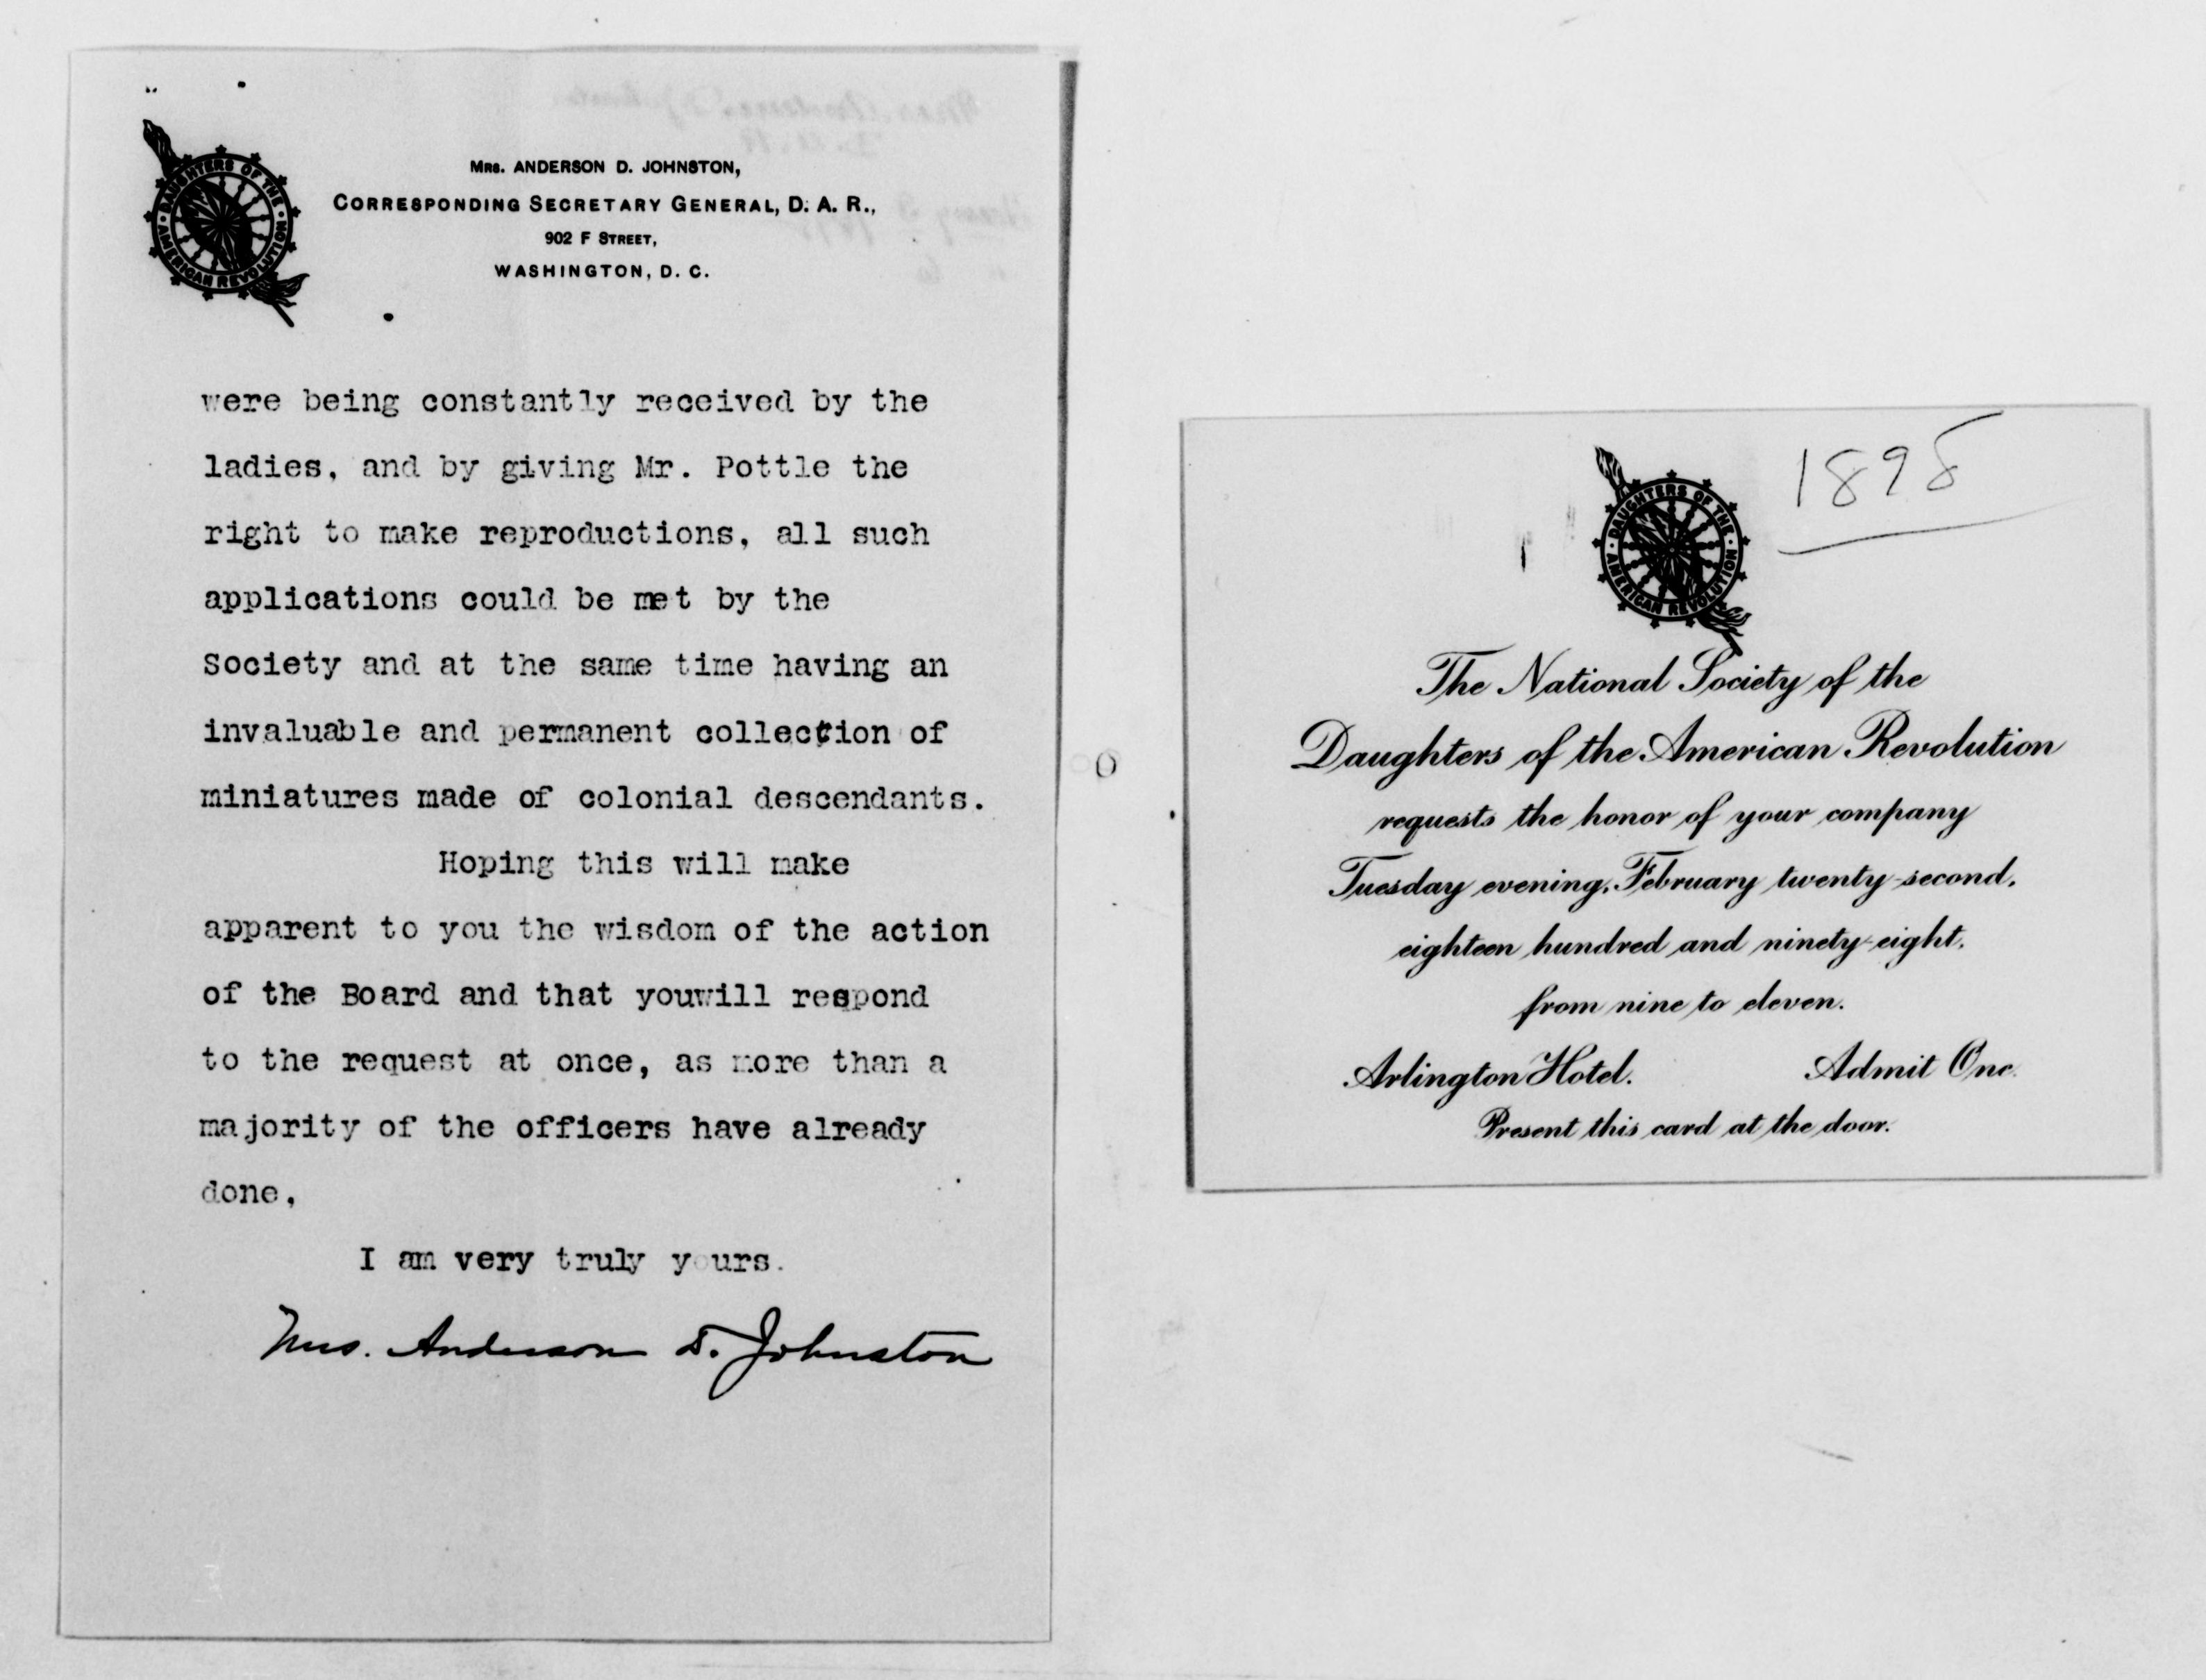 DAUGHTERS OF THE AMERICAN REVOLUTION
Mrs. ANDERSON D. JOHNSTON,
CORRESPONDING SECRETARY GENERAL, D. A. R.,
902 F STREET,
WASHINGTON, D. C.
were being constantly received by the
ladies, and by giving Mr. Pottle the
right to make reproductions, all such
applications could be met by the
Society and at the same time having an
invaluable and permanent collection of
miniatures made of colonial descendants.
Hoping this will make
apparent to you the wisdom of the action
of the Board and that youwill respond
to the request at once, as more than a
majority of the officers have already
done,
I am very truly yours.
Mrs. Anderson D. Johnston
1898
DAUGHTERS OF THE AMERICAN REVOLUTION
The National Society of the
Daughters of the American Revolution
requests the honor of your company
Tuesday evening, February twenty-second,
eighteen hundred and ninety-eight,
from nine to eleven.
Arlington Hotel. Admit One.
Present this card at the door.